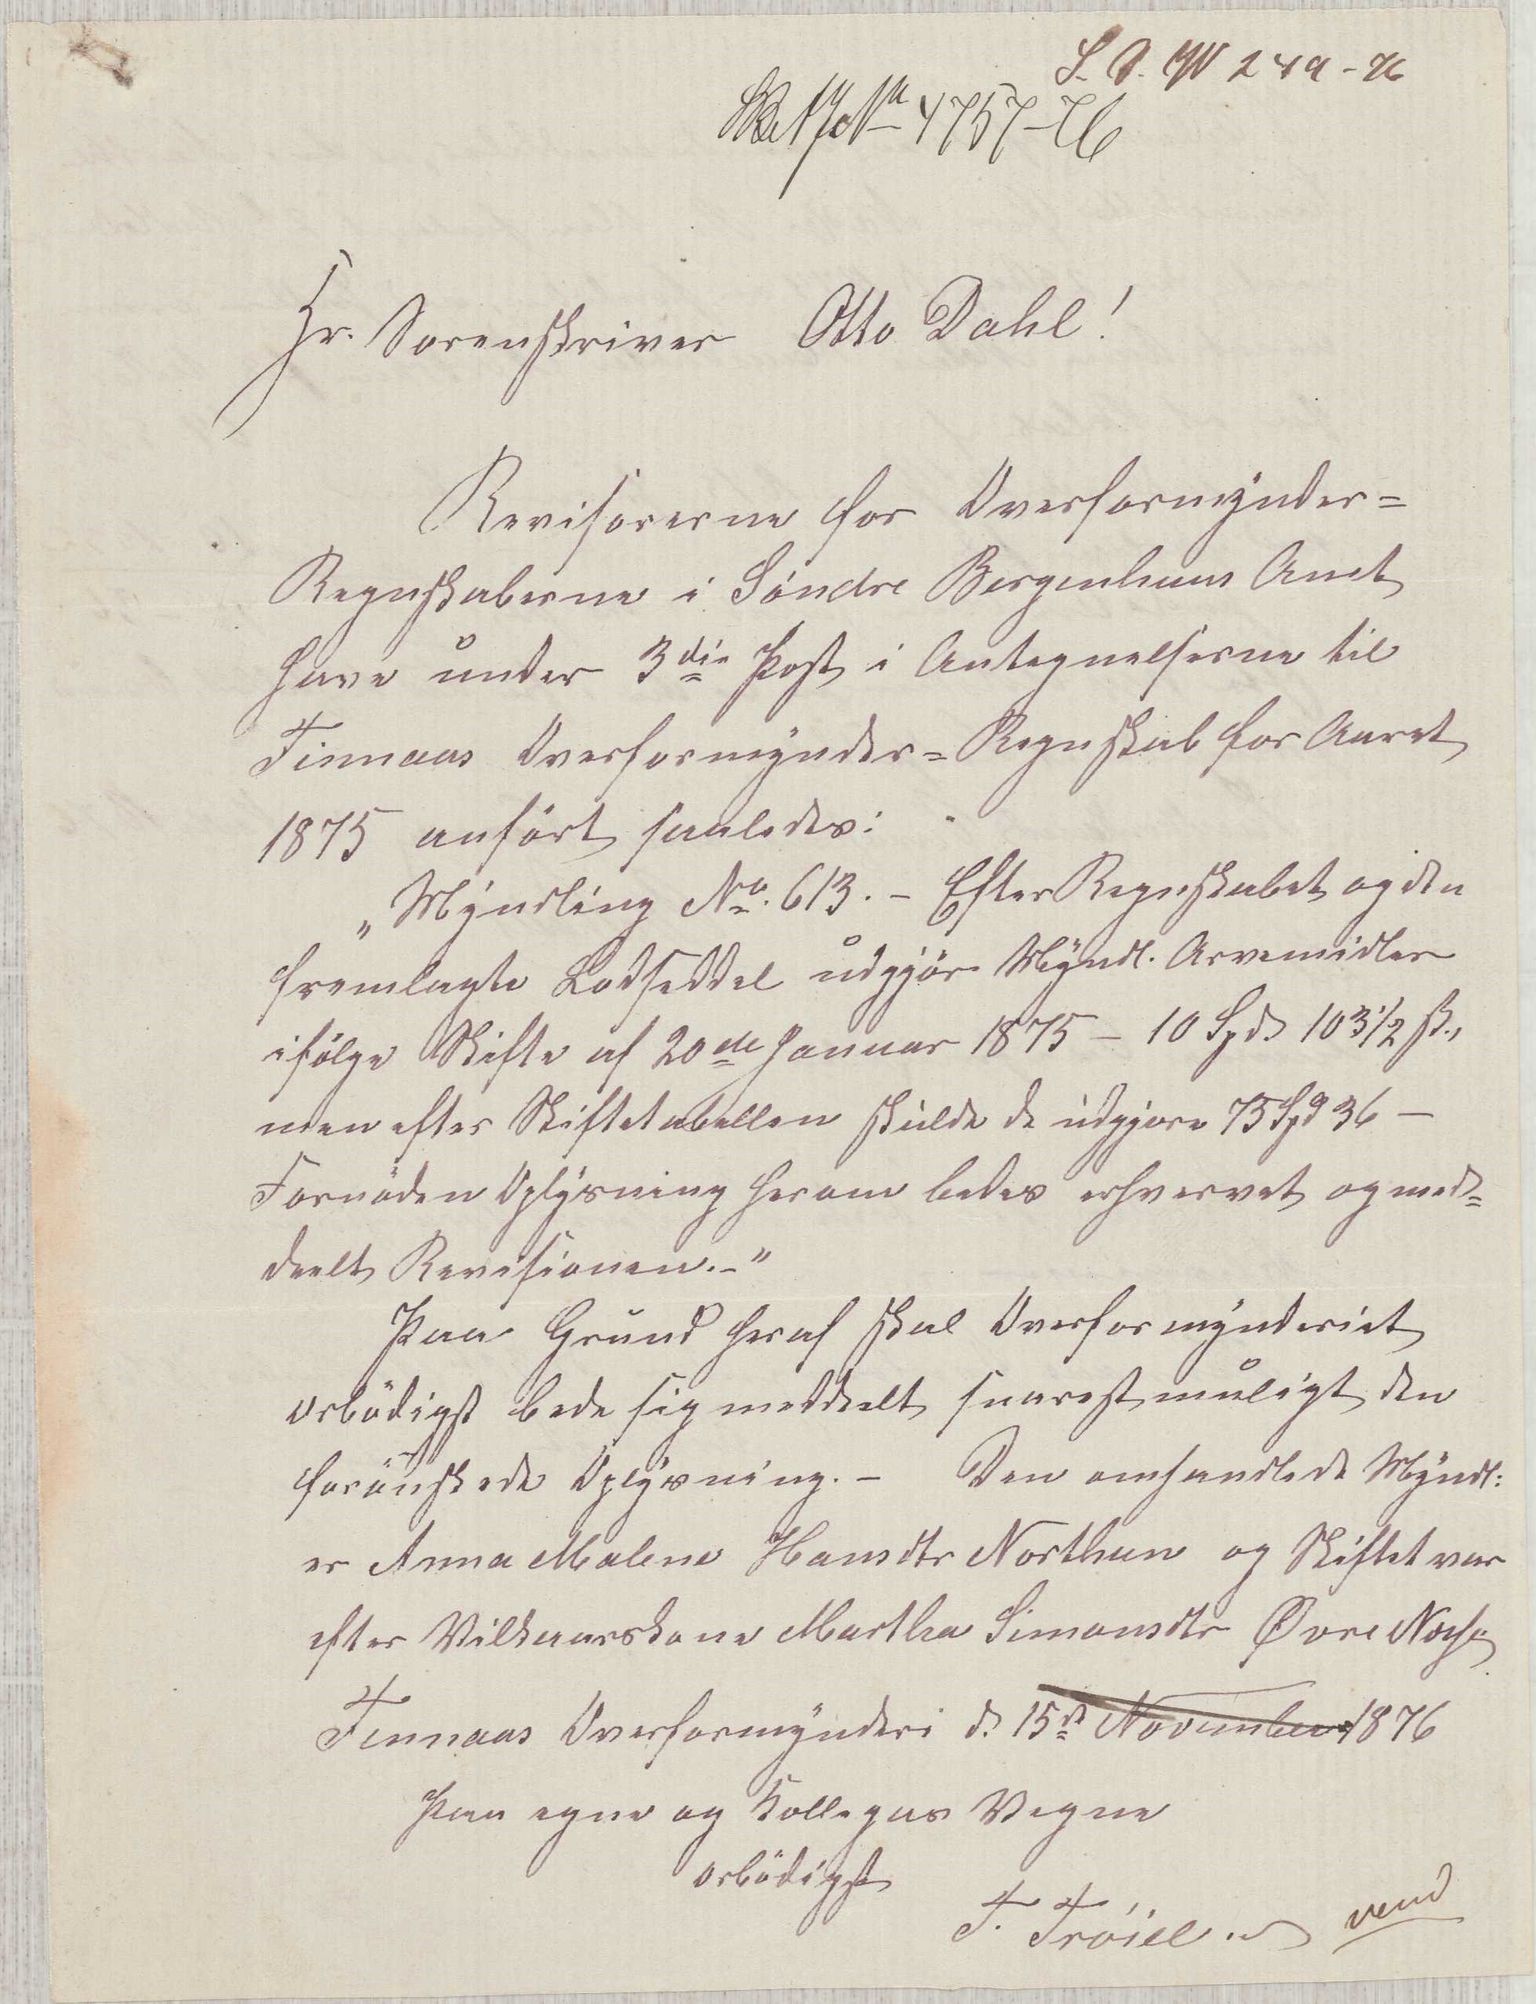 S. D. No 249-76
No 4757-76
Hr. Sorenskriver Otto Dahl!
Revisorerne for Overformynder=
Regnskaberne i Søndre Bergenhuus Amt
have under 3die Post i Antegnelserne til
Finnaas Overformynder=Regnskab for Aaret
1875 anført saaledes:
„Myndling No. 613. – Efter Regnskabet og den
fremlagte Lodseddel udgjør Myndl. Arvemidler
ifølge Skifte af 20de Januar 1875 – 10 Spd. 103½ ß.,
men efter Skiftetabellen skulde de udgjøre 75 Spd 36 –
Fornøden Oplysning herom bedes erhvervet og med=
deelt Revisionen. –"
Paa Grund heraf skal Overformynderiet
ærbødigst bede sig meddeelt snarest muligt den
forønskede Oplysning. – Den omhandlede Myndl:
er Anna Malene Hansdtr Northun og Skiftet var
efter Vilkaarskone Martha Simonsdtr Øvre
Finnaas Overformynderi d. 15de November 1876
Paa egne og Kollegas Vegne
ærbødigst
F. Trøiel.
vend